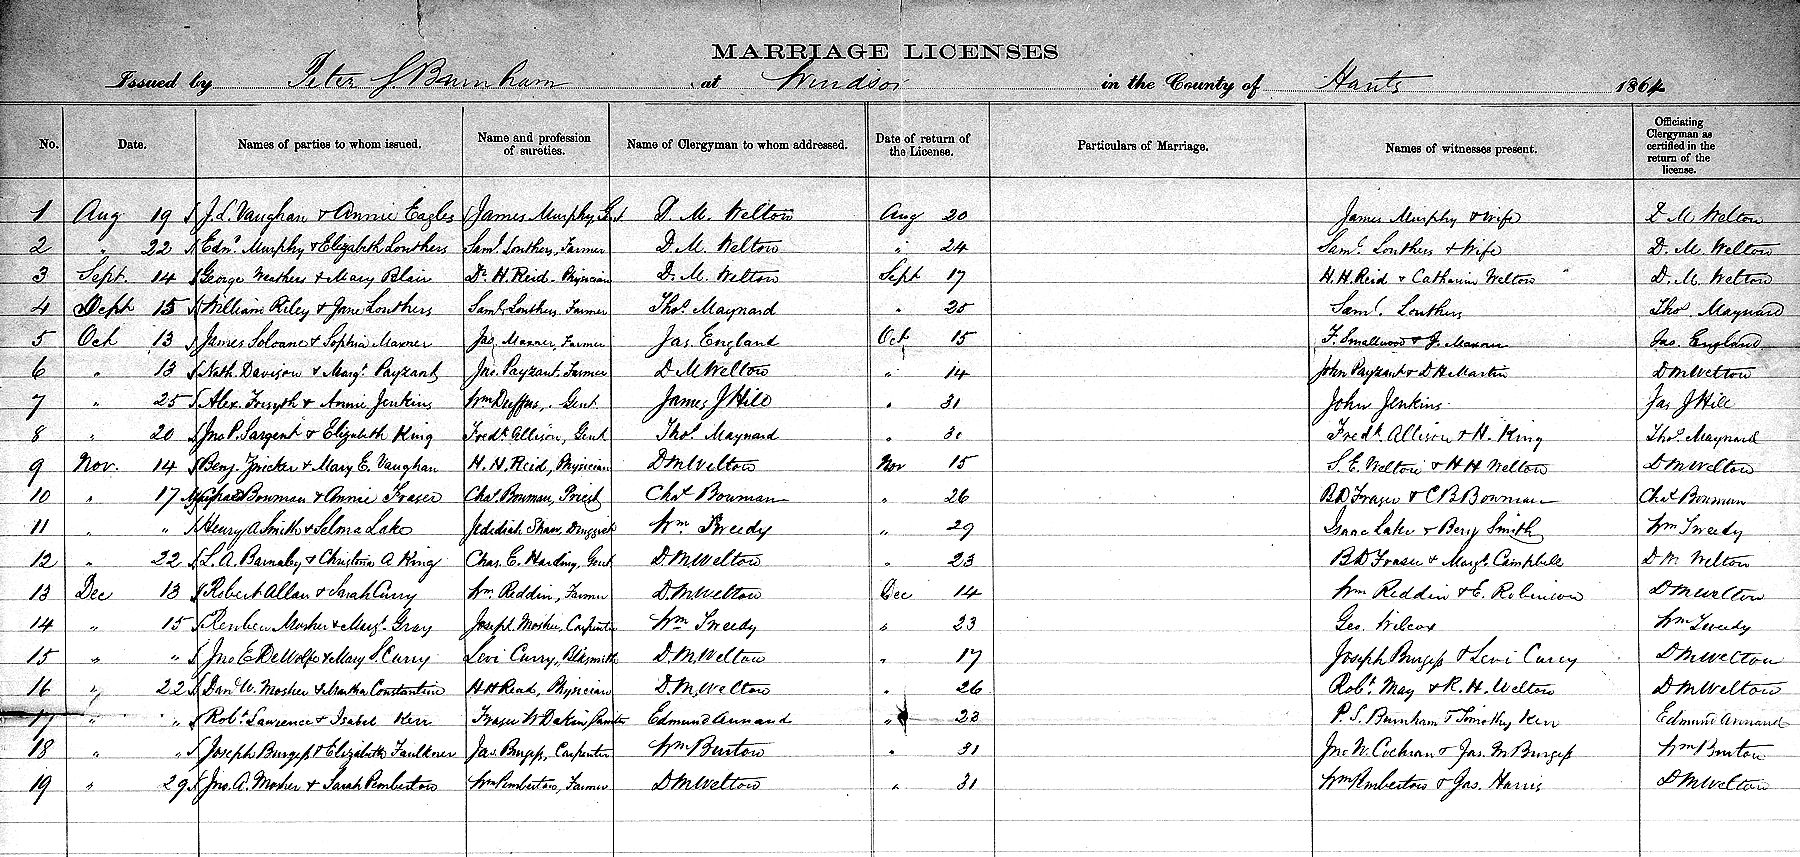 MARRIAGE LICENSES
Issued by Peter S. Burnham at Windsor in the County of Hants 1864
No. Date. Names of parties to whom issued. Name and profession of sureties. Name of Clergyman to whom addressed. Date of return of the License. Particulars of Marriage. Names of witnesses present. Officiating Clergyman as certified in the return of the license.
1 Aug 19 J. L. Vaughan & Annie Eagles James Murphy, Gent D. M. Welton Aug 20 James Murphy & wife D M Welton
2 " 22 Edw. Murphy & Elizabeth Louthers Saml. Louthers, Farmer D. M. Welton " 24 Saml. Louthers & Wife D. M. Welton
3 Sept. 14 George Weathers & Mary Blair Dr. H. Reid - Physician D. M. Welton Sept 17 H. H. Reid & Catharine Welton D. M. Welton
4 Sept 15 William Riley & Jane Louthers Saml. Louthers, Farmer Thos. Maynard " 25 Saml. Louthers Thos. Maynard
5 Oct 13 James Soloane & Sophia Maxner Jas. Maxner, Farmer Jas. England Oct 15 F. Smallwood & J. Maxner Jas. England
6 " 13 Nath. Davison & Margt. Payzant Jno. Payzant, Farmer D M Welton " 14 John Payzant & D H Martin D M Welton
7 " 25 Alex. Forsyth & Annie Jenkins Wm Duffus, Gent. James J Hill " 31 John Jenkins Jas J Hill
8 " 20 Jno P. Sargent & Elizabeth King Fredk. Allison, Gent Thos. Maynard " 31 Fredk. Allison & H. King Thos. Maynard
9 Nov. 14 Benj. Zwicker & Mary E. Vaughan H. H. Reid, Physician D M Welton Nov 15 S. E. Welton & H H Welton D M Welton
10 " 17 Bowman & Annie Fraser Chas. Bowman, Priest Chas. Bowman " 26 B D Fraser & C B Bowman Chas. Bowman
11 " " Henry A Smith & Selma Lake Jedidiah Shaw, Druggist Wm. Tweedy " 29 Isaac Lake & Benj Smith Wm Tweedy
12 " 22 L. A. Barnaby & Christina A King Chas. E. Harding, Gent D M Welton " 23 B D Fraser & Margt. Campbell D M Welton
13 Dec 13 Robert Allan & Sarah Curry Wm. Reddin, Farmer D. M. Welton Dec 14 Wm Reddin & E. Robinson D M Welton
14 " 15 Reuben Mosher & Margt. Gray Joseph Mosher, Carpenter Wm Tweedy " 23 Geo. Wilcox Wm Tweedy
15 " " Jno E DeWolfe & Mary S. Curry Levi Curry, Blksmith D. M. Welton " 17 Joseph Burgess & Levi Curry D M Welton
16 " 22 Danl. W. Mosher & Constantine H H Read, Physician D. M. Welton " 26 Robt. May & R. H. Welton D M Welton
17 " " Robt. Lawrence & Isabel Kerr Fraser W Dakin, Edmund Annand " 28 P. S. Burnham & Timothy Kerr Edmund Annand
18 " " Joseph Burgess & Elizabeth Faulkner Jas. Burgess, Carpenter Wm Burton " 31 Jno W. Cochran & Jas. M Burgess Wm Burton
19 " 29 Jno. A. Mosher & Sarah Pemberton Wm Pemberton, Farmer D M Welton " 31 Wm Pemberton & Jas. Harris D M Welton